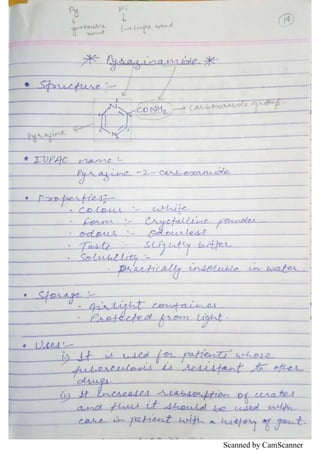 Py Pi
double bond 1→single bond
* Pyrazinamide *
• Structure :-
CONH₂ → carboxamide group.
Pyrazine
N
• IUPAC name :
Pyrazine-2-carboxamide
• Properties:-
• Colour :- white
• Form :- Crystalline powder
• odour :- odourless
• Taste :- Slightly bitter
• Solubility :-
practically insoluble in water.
• Storage :-
• Airtight container
• Protected from light.
• Uses:-
i) It is used for patients whose
tuberculosis is resistant to other
drugs.
ii) It increases reabsorption of urates
and thus it should be used with
care in patient with a history of gout.
Scanned by CamScanner